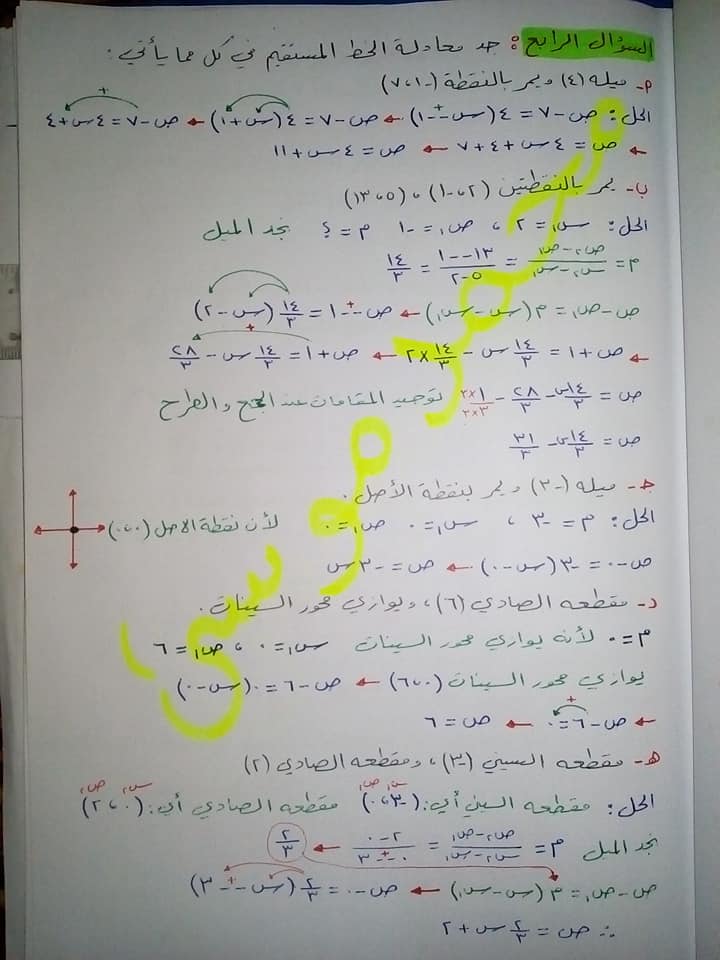 السؤال الرابع: جد معادلة الخط المستقيم في كل مما يأتي:
م- ميله (٤) ويمر بالنقطة (-٧،١)
الحل: ص-٧=٤(س--١) ← ص-٧=٤(س+١) ← ص-٧=٤س+٤
← ص=٤س+٤+٧ ← ص=٤س+١١
ب- يمر بالنقطتين (٢،-١)، (١٣،٥)
الحل: س١=٢، ص١=-١ م=؟ نجد الميل
م=(ص٢-ص١)/(س٢-س١)=(١٣--١)/(٥-٢)=١٤/٣
ص-ص١=م(س-س١) ← ص--١=١٤/٣(س-٢)
← ص+١=١٤/٣ س-١٤/٣×٢ ← ص+١=١٤/٣ س-٢٨/٣
ص=١٤س/٣-٢٨/٣-١×٣/١×٣ توحيد المقامات عند الجمع والطرح
ص=١٤س/٣-٣١/٣
جـ- ميله (-٣) ويمر بنقطة الأصل.
الحل: م=-٣، س١=٠ ص١=٠ لأن نقطة الأصل (٠،٠)
ص-٠=-٣(س-٠) ← ص=-٣س
د- مقطعه الصادي (٦)، ويوازي محور السينات.
م=٠ لأنه يوازي محور السينات س١=٠، ص١=٦
يوازي محور السينات (٦،٠) ← ص-٦=٠(س-٠)
← ص-٦=٠ ← ص=٦
هـ- مقطعه السيني (-٣)، ومقطعه الصادي (٢)
س١ ص١ س٢ ص٢
الحل: مقطعه السيني أي: (-٣،٠) مقطعه الصادي أي: (٢،٠)
نجد الميل م=(ص٢-ص١)/(س٢-س١)=(٢-٠)/(٠--٣) ← ٢/٣
ص-ص١=م(س-س١) ← ص-٠=٢/٣(س--٣)
∴ ص=٢/٣ س+٢